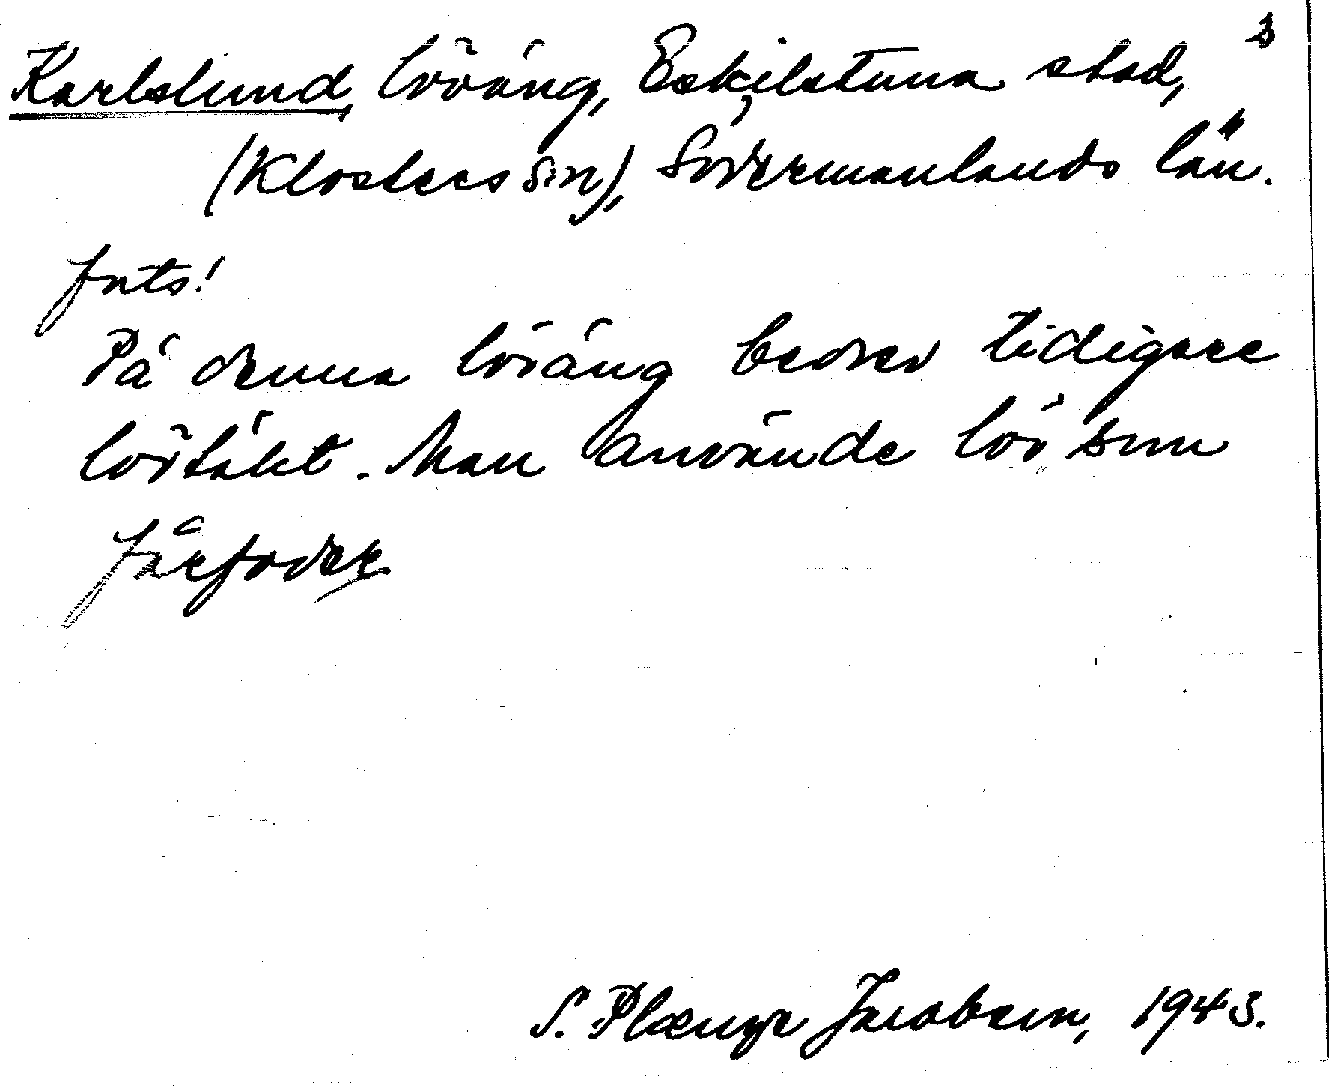 s
Karlslund, löväng, Eskilstuna stad,
(Klosters sn), Södermanlands län.
fnts!
På denna löväng bedrev tidigare
lövtäkt. Man använde löv som
fårfoder
S. Plænge Jacobson, 1943.